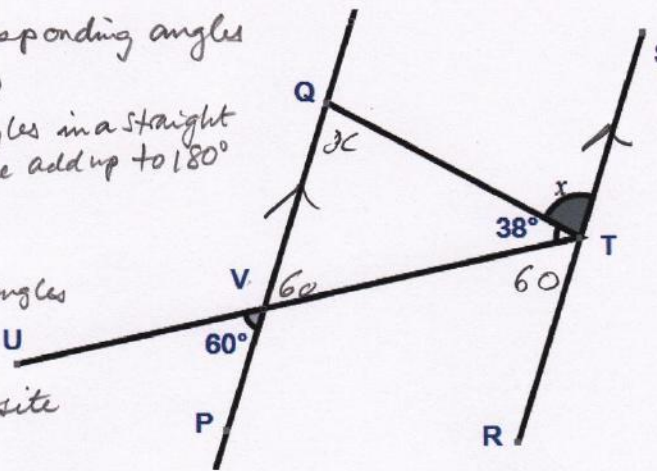 angles
gles in a straight
add up to 180°
ngles
site
Q
x
S
x
38°
T
V
60
60
U
60°
P
R